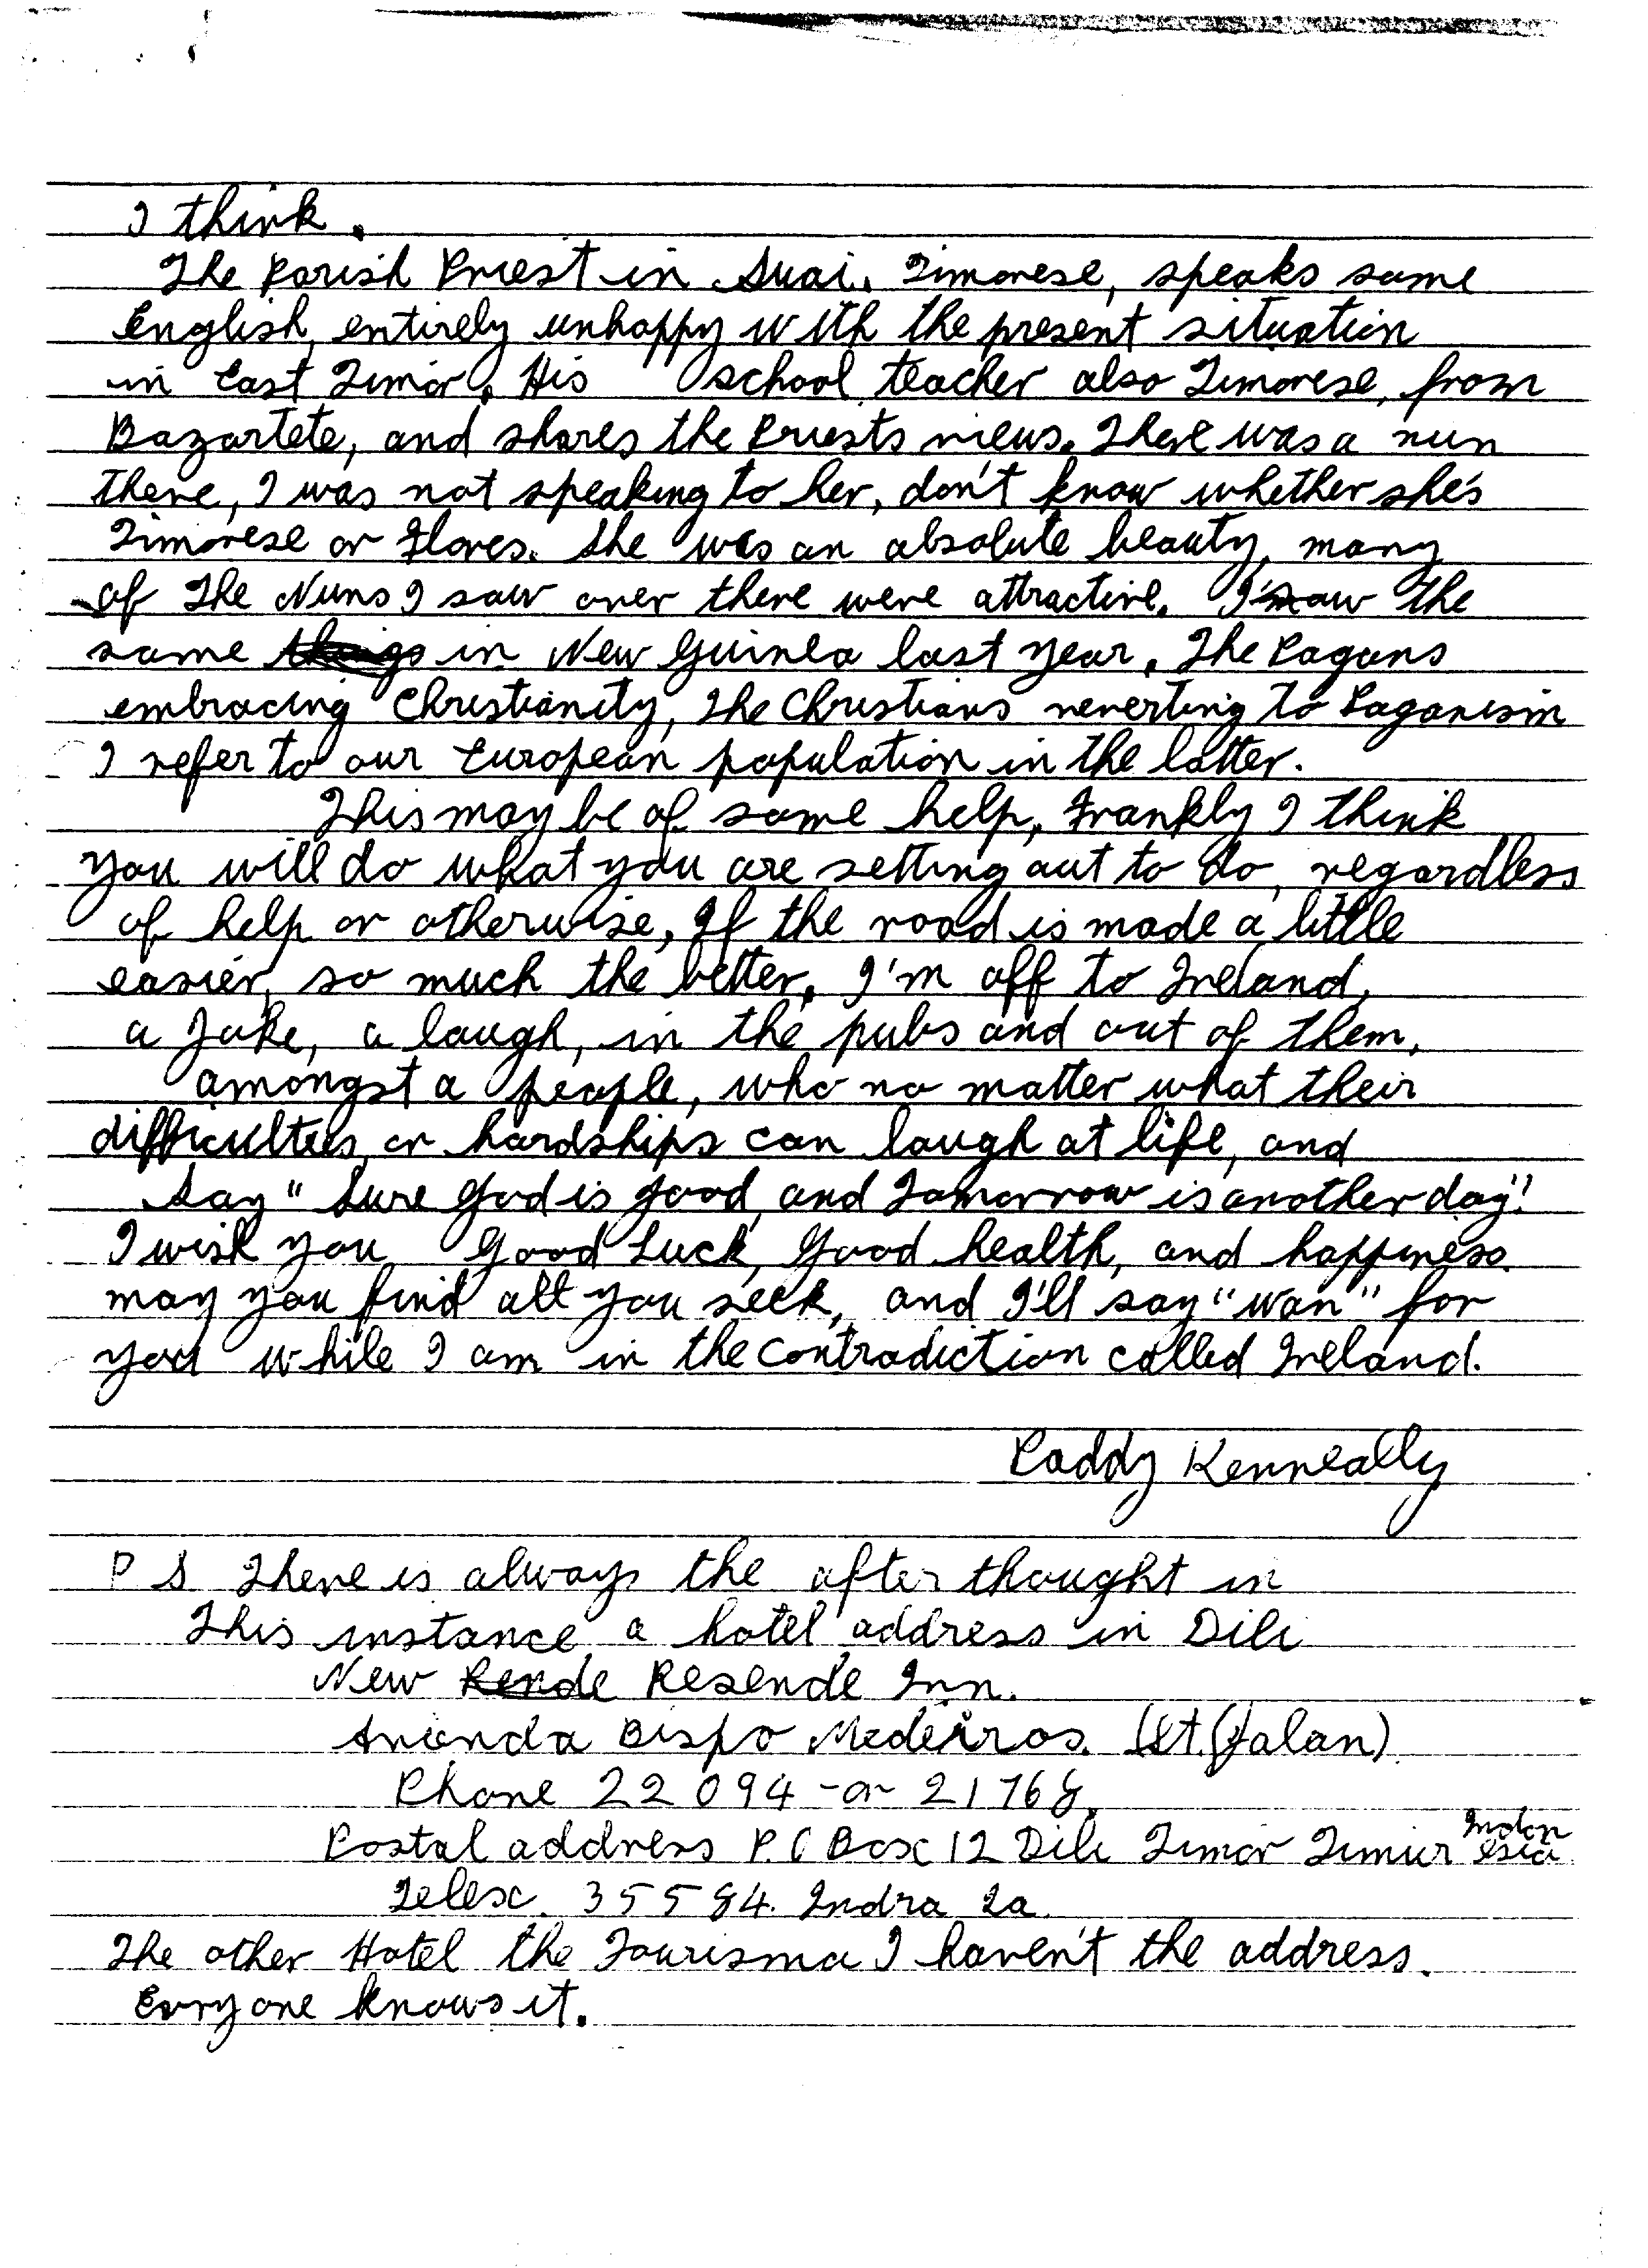 I think.
The Parish Priest in Suai. Timorese, speaks some
English, entirely unhappy with the present situation
in East Timor. His school teacher also Timorese, from
Bazartete, and shares the Priests views. There was a nun
there, I was not speaking to her, don't know whether she's
Timorese or Flores. She was an absolute beauty, many
of The Nuns I saw over there were attractive. I saw the
same things in New Guinea last year. The Pagans
embracing Christianity, The Christians reverting to Paganism
I refer to our European population in the latter.
This may be of some help, Frankly I think
you will do what you are setting out to do, regardless
of help or otherwise, If the road is made a little
easier, so much the better. I'm off to Ireland,
a Joke, a laugh, in the pubs and out of them,
amongst a people, who no matter what their
difficulties, or hardships can laugh at life, and
Say "Sure God is good, and Tomorrow is another day"!
I wish you Good Luck, Good health, and happiness.
may you find all you seek, and I'll say "wan" for
you while I am in the contradiction called Ireland.
Paddy Kenneally
P S There is always the after thought in
This instance a hotel address in Dili
New Rende Resende Inn.
Avienda Bispo Medeiros. (St. (Jalan)
Phone 22 094 - or 21768.
Postal address P. O Box 12 Dili Timor Timur Indonesia
Telex. 35584. Indra Ia.
The other Hotel the Tourisma I haven't the address.
Evryone knows it.